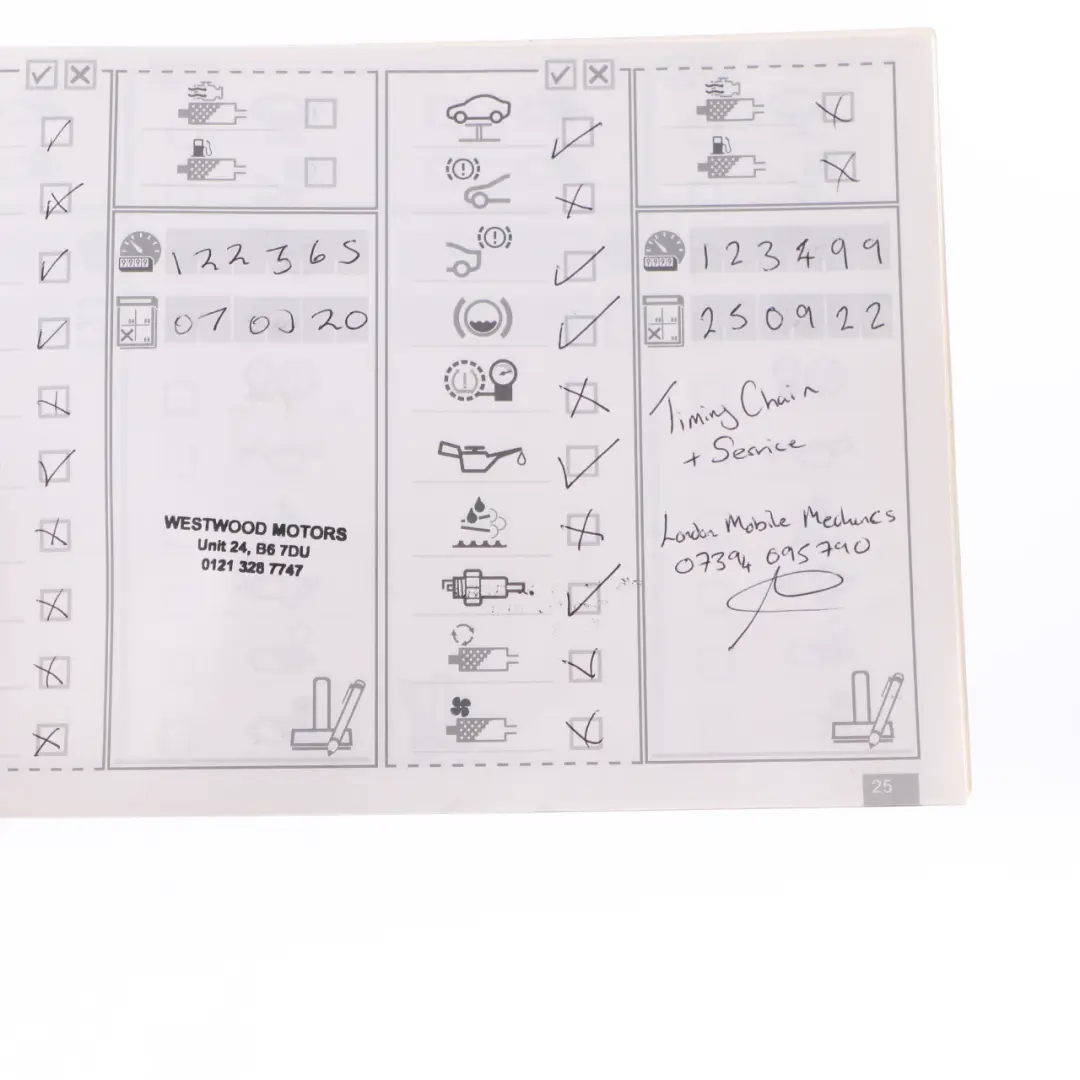 122365
07 03 20
WESTWOOD MOTORS
Unit 24, B6 7DU
0121 328 7747
123499
250922
Timing Chain
+ Service
London Mobile Mechanics
07394 095790
25